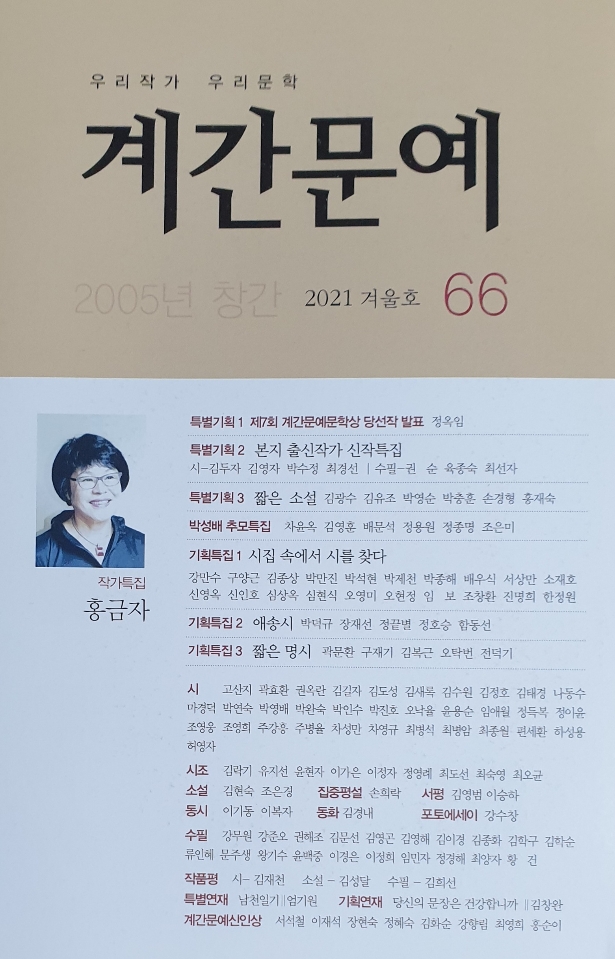 우리작가 우리문학
계간문예
2005년 창간 2021 겨울호 66
특별기획 1 제7회 계간문예문학상 당선작 발표 정옥임
특별기획 2 본지 출신작가 신작특집
시-김두자 김영자 박수정 최경선 | 수필-권 순 육종숙 최선자
특별기획 3 짧은 소설 김광수 김유조 박영순 박충훈 손경형 홍재숙
박성배 추모특집 차윤옥 김영훈 배문석 정용원 정종명 조은미
기획특집 1 시집 속에서 시를 찾다
강만수 구양근 김종상 박만진 박석현 박제천 박종해 배우식 서상만 소재호
신영옥 신인호 심상옥 심현식 오영미 오현정 임 보 조창환 진명희 한정원
작가특집
홍금자
기획특집 2 애송시 박덕규 장재선 정끝별 정호승 함동선
기획특집 3 짧은 명시 곽문환 구재기 김복근 오탁번 전덕기
시 고산지 곽효환 권옥란 김길자 김도성 김새록 김수원 김정호 김태경 나동수
마경덕 박연숙 박영배 박완숙 박인수 박진호 오낙율 윤용순 임애월 정득복 정이윤
조영웅 조영희 주강홍 주병율 차성만 차영규 최병석 최병암 최종월 편세환 하성용
허영자
시조 김락기 유지선 윤현자 이가은 이정자 정영례 최도선 최숙영 최오균
소설 김현숙 조은경 집중평설 손희락 서평 김영범 이승하
동시 이기동 이복자 동화 김경내 포토에세이 강수창
수필 강무원 강준오 권해조 김문선 김영곤 김영해 김이경 김종화 김학구 김학순
류인혜 문주생 왕기수 윤백중 이경은 이정희 임민자 정경해 최양자 황 건
작품평 시- 김재천 소설 - 김성달 수필 - 김희선
특별연재 남천일기 || 엄기원 기획연재 당신의 문장은 건강합니까 || 김창완
계간문예신인상 서석철 이재석 장현숙 정혜숙 김화순 강향림 최영희 홍순이